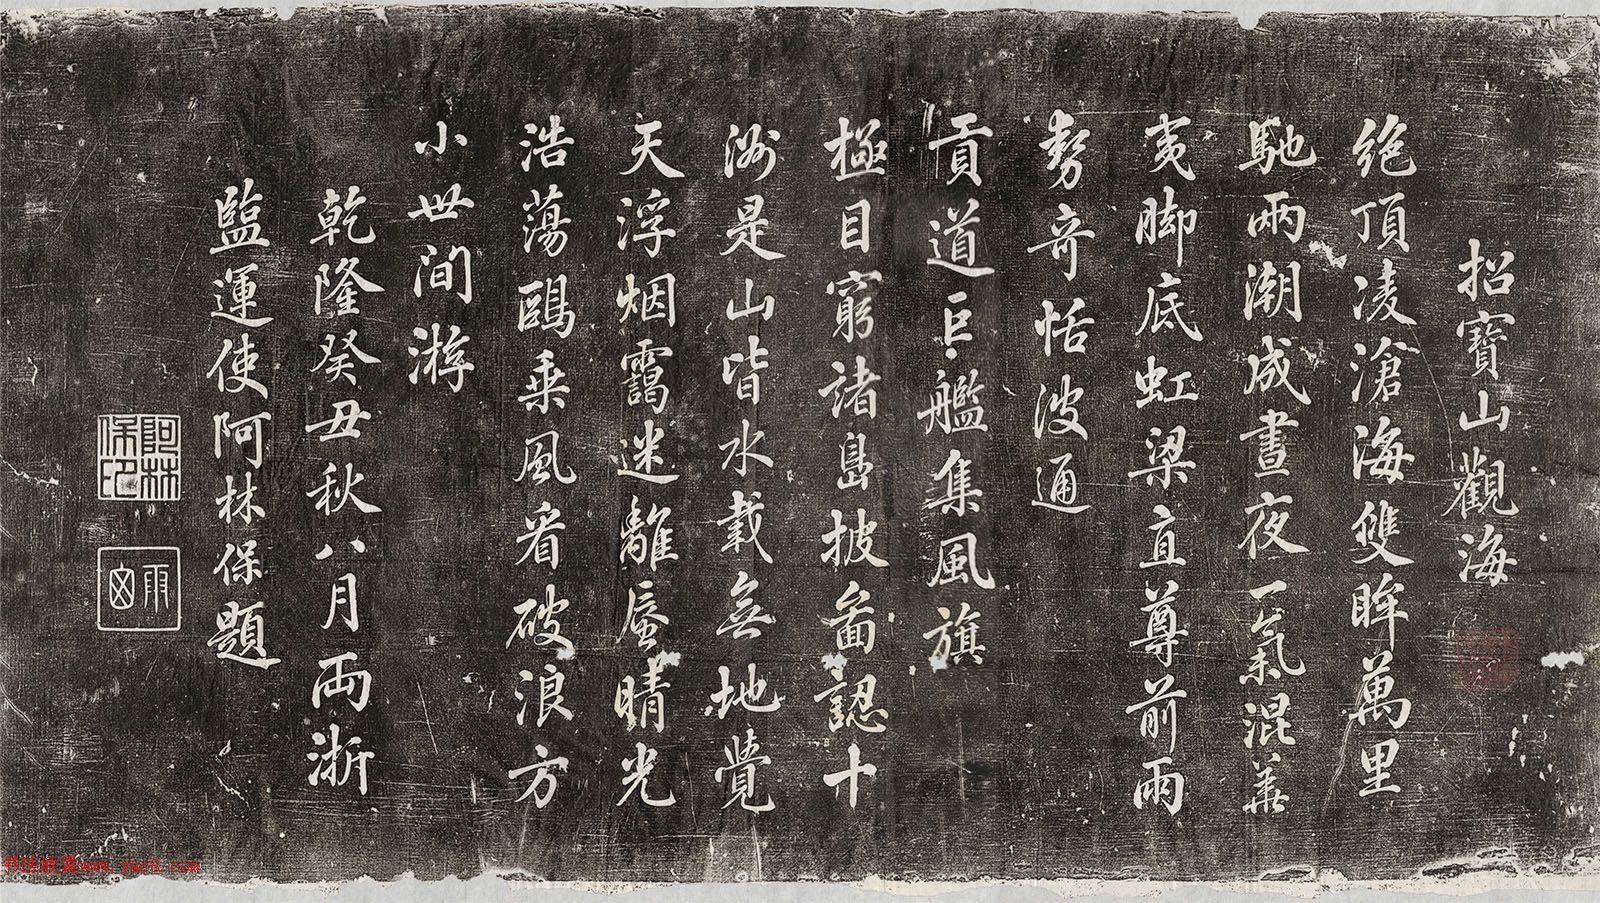 招寶山觀海
絶頂凌滄海雙眸萬里
馳兩潮成晝夜一氣混華
夷脚底虹梁直尊前兩
勢奇恬波通
貢道巨艦集風旗
極目窮諸島披圖認十
洲是山皆水載無地覺
天浮烟靄迷離蜃晴光
浩蕩鷗乗風看破浪方
小世間游
乾隆癸丑秋八月両浙
監運使阿林保題
阿林保印
雨窗
书法欣赏www.yac8.com